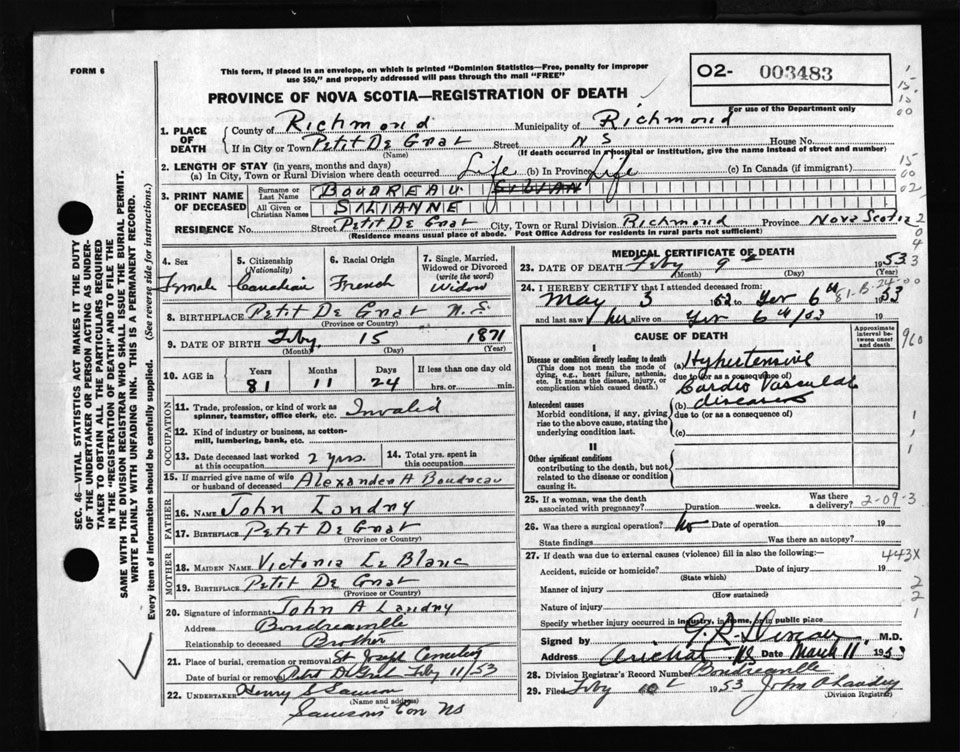 FORM 6
This form, if placed in an envelope, on which is printed "Dominion Statistics—Free, penalty for improper
use $50," and properly addressed will pass through the mail "FREE"
O2- 003483
For use of the Department only
PROVINCE OF NOVA SCOTIA—REGISTRATION OF DEATH
SEC. 46—VITAL STATISTICS ACT MAKES IT THE DUTY
OF THE UNDERTAKER OR PERSON ACTING AS UNDER-
TAKER TO OBTAIN ALL THE PARTICULARS REQUIRED
IN THE "REGISTRATION OF DEATH" AND TO FILE THE
SAME WITH THE DIVISION REGISTRAR WHO SHALL ISSUE THE BURIAL PERMIT.
WRITE PLAINLY WITH UNFADING INK. THIS IS A PERMANENT RECORD.
Every item of information should be carefully supplied. (See reverse side for instructions.)
1. PLACE OF DEATH
County of Richmond Municipality of Richmond
If in City or Town Petit De Grat Street N S House No.
(Name) (If death occurred in hospital or institution, give the name instead of street and number)
2. LENGTH OF STAY (in years, months and days)
(a) In City, Town or Rural Division where death occurred Life (b) In Province Life (c) In Canada (if immigrant)
3. PRINT NAME OF DECEASED
Surname or Last Name BOUDREAU SILVIAN
All Given or Christian Names SILIANNE
RESIDENCE No. Street Petit De Grat City, Town or Rural Division Richmond Province Nova Scotia
(Residence means usual place of abode. Post Office Address for residents in rural parts not sufficient)
4. Sex Female
5. Citizenship (Nationality) Canadian
6. Racial Origin French
7. Single, Married, Widowed or Divorced (write the word) Widow
8. BIRTHPLACE Petit De Grat N.S.
(Province or Country)
9. DATE OF BIRTH Feby 15 1871
(Month) (Day) (Year)
10. AGE in Years Months Days If less than one day
81 11 24 hrs. or min.
OCCUPATION
11. Trade, profession, or kind of work as spinner, teamster, office clerk, etc. Invalid
12. Kind of industry or business, as cotton-mill, lumbering, bank, etc.
13. Date deceased last worked at this occupation 2 yrs.
14. Total yrs. spent in this occupation
15. If married give name of wife or husband of deceased Alexander A Boudreau
FATHER
16. NAME John Landry
17. BIRTHPLACE Petit De Grat
(Province or Country)
MOTHER
18. MAIDEN NAME Victoria Le Blanc
19. BIRTHPLACE Petit De Grat
(Province or Country)
20. Signature of informant John A Landry
Address Boudreauville
Relationship to deceased Brother
21. Place of burial, cremation or removal St Joseph Cemetery
Date of burial or removal Petit De Grat Feby 11/53
22. UNDERTAKER Henry S Samson
(Name and address)
Samsons Cov NS
MEDICAL CERTIFICATE OF DEATH
23. DATE OF DEATH Feby 9 1953
(Month) (Day) (Year)
24. I HEREBY CERTIFY that I attended deceased from:
May 3 to 6th 1953
and last saw her alive on 6th/53
81-B-24-00
CAUSE OF DEATH
Approximate interval between onset and death
I
Disease or condition directly leading to death
(This does not mean the mode of dying, e.g., heart failure, asthenia, etc. It means the disease, injury, or complication which caused death.)
(a) Hypertensive
due to (or as a consequence of)
Cardio Vascular
Antecedent causes
Morbid conditions, if any, giving rise to the above cause, stating the underlying condition last.
(b) disease
due to (or as a consequence of)
(c)
II
Other significant conditions
contributing to the death, but not related to the disease or condition causing it.
25. If a woman, was the death associated with pregnancy? Duration weeks. Was there a delivery?
2-09-3
26. Was there a surgical operation? No Date of operation 19
State findings Was there an autopsy?
27. If death was due to external causes (violence) fill in also the following:—
443X
Accident, suicide or homicide? Date of injury 19
(State which)
Manner of injury
(How sustained)
Nature of injury
Specify whether injury occurred in industry, in home, or in public place
Signed by M.D.
Address Arichat NS Date March 11 1953
28. Division Registrar's Record Number Boudreauville
29. Filed Feby 10 1953 John A Landry
(Division Registrar)